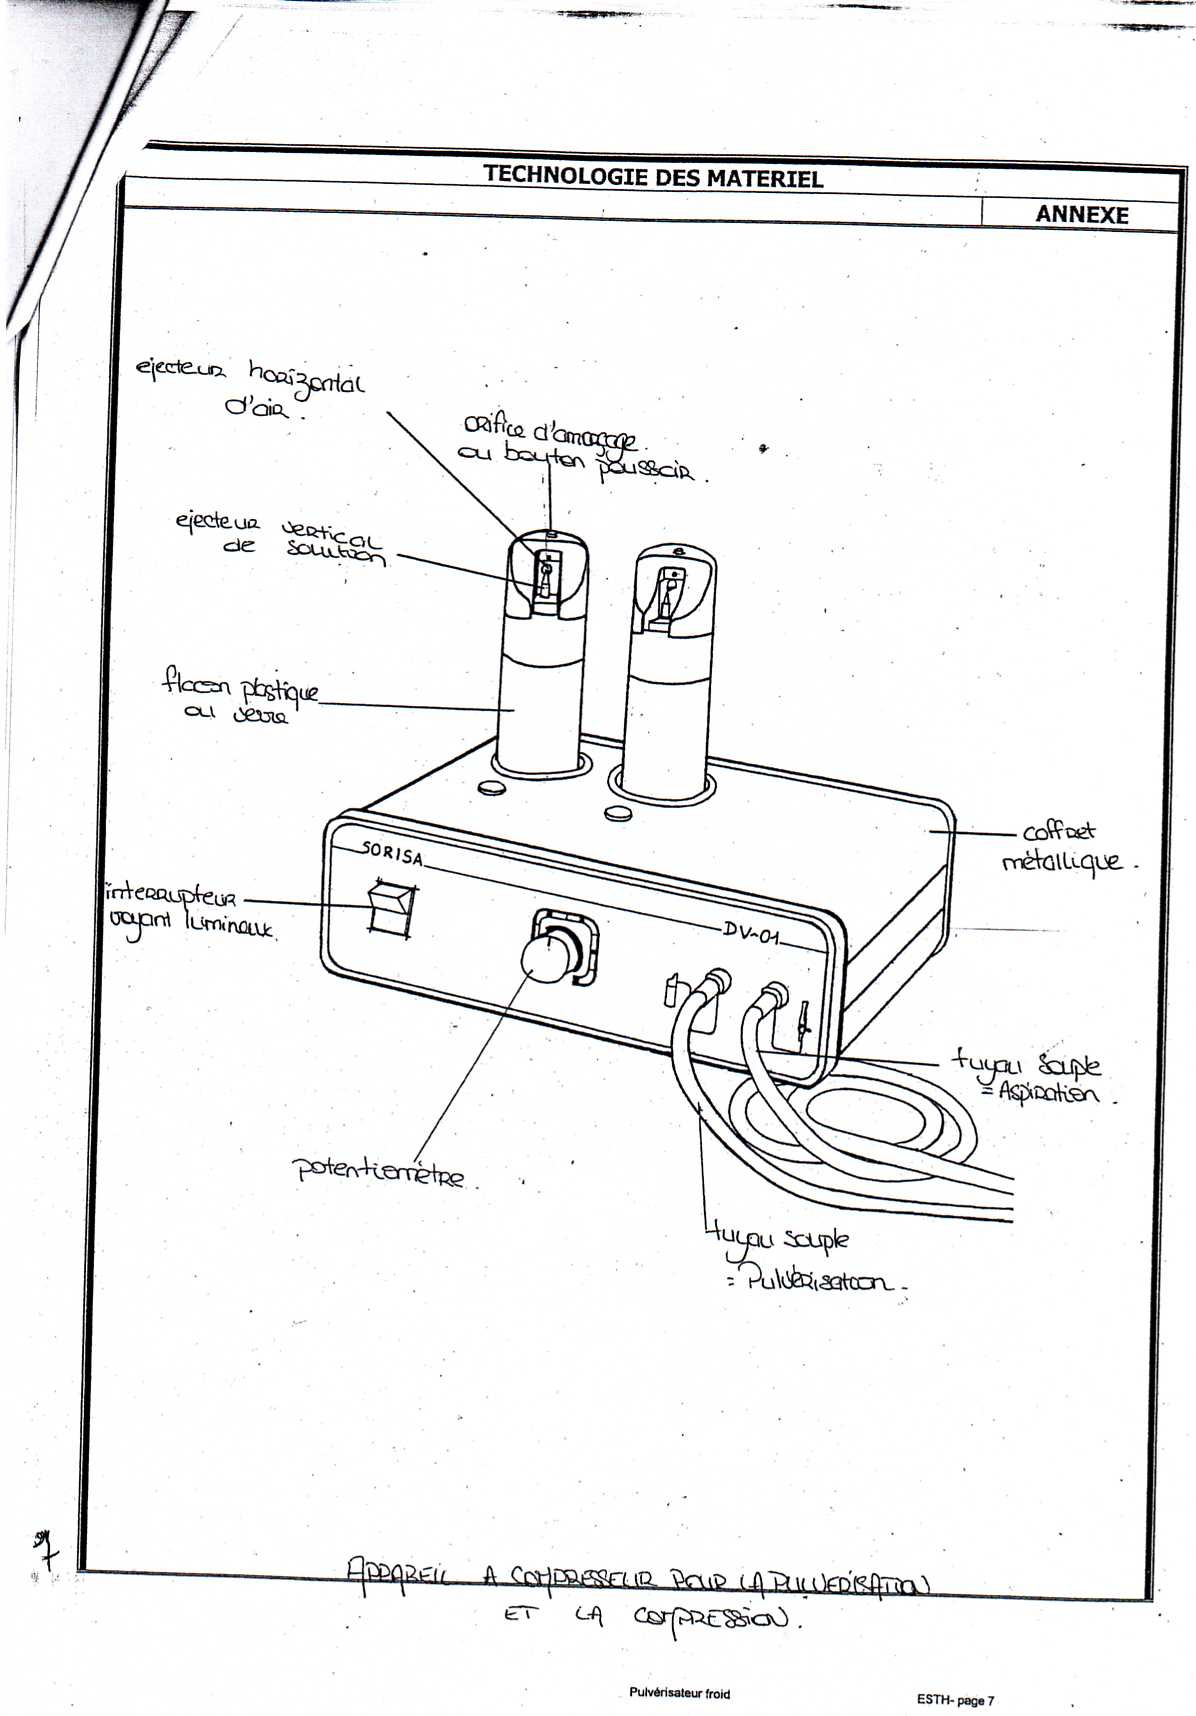 TECHNOLOGIE DES MATERIEL
ANNEXE
ejecteur horizontal
d'air.
orifice d'amorçage
ou bouton poussoir.
ejecteur vertical
de solution
flacon plastique
ou verre
coffret
métallique.
SORISA
interrupteur
voyant lumineux.
DV-01
tuyau souple
= Aspiration.
potentiomètre.
tuyau souple
= Pulvérisation.
APPAREIL A COMPRESSEUR POUR LA PULVERISATION
ET LA COMPRESSION.
Pulvérisateur froid
ESTH- page 7